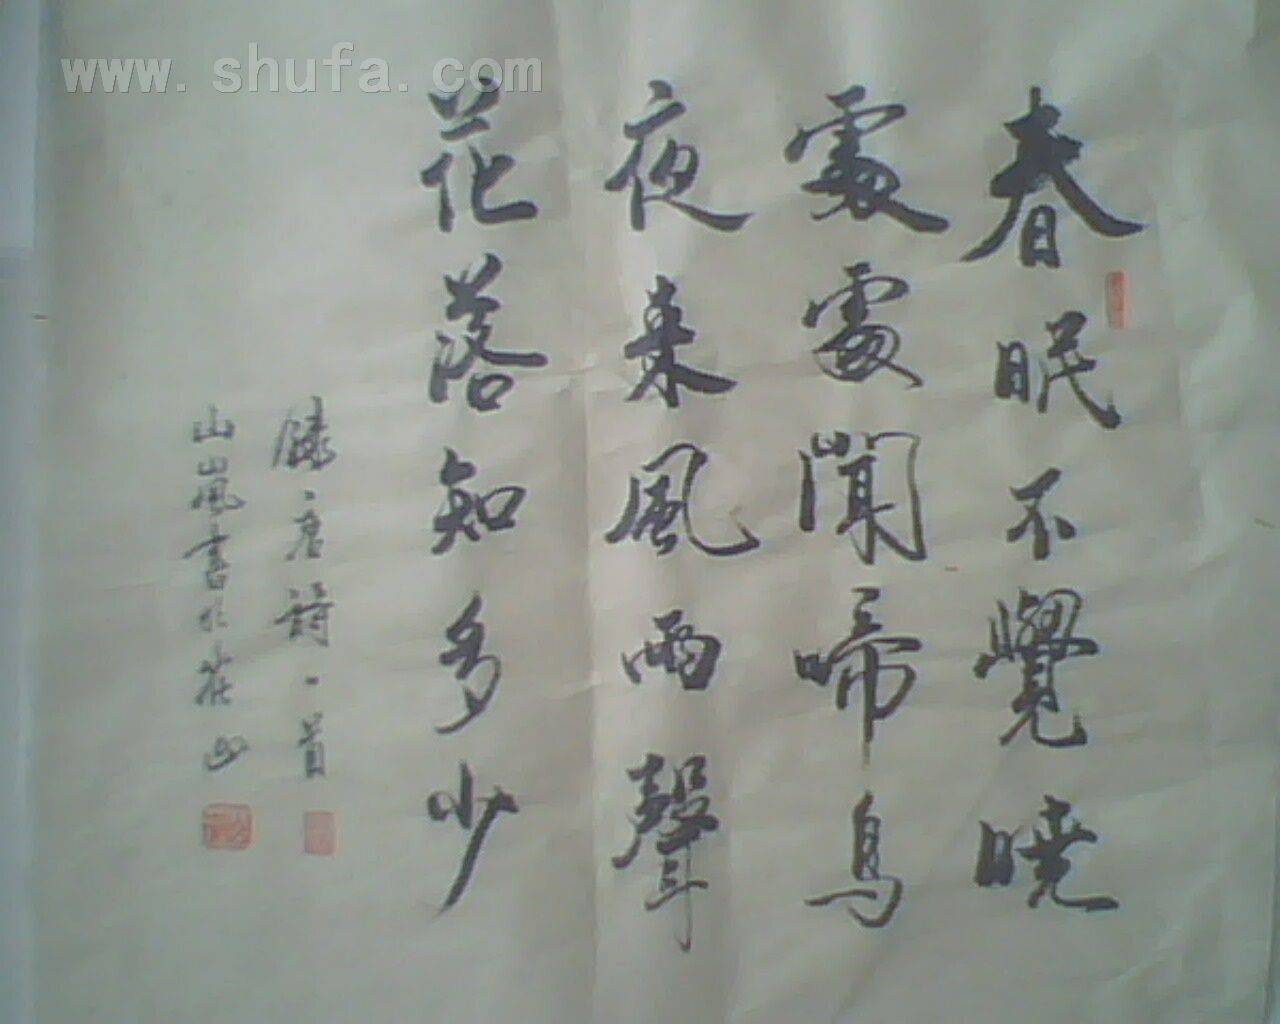 www.shufa.com
春眠不覺曉
處處聞啼鳥
夜来風雨聲
花落知多少
錄唐詩一首
山山風書於莊